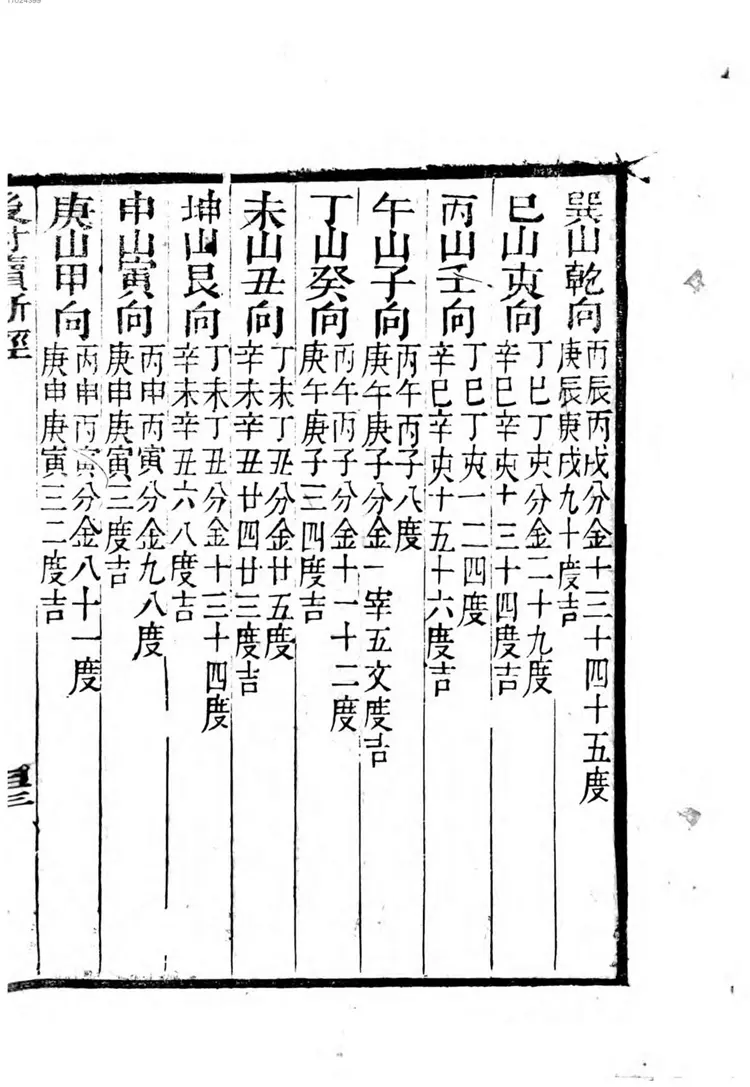 11024599
巽山乾向
丙辰丙戌分金十三十四十五度
庚辰庚戌九十度吉
巳山亥向
丁巳丁亥分金二十九度
辛巳辛亥十三十四度吉
丙山壬向
丁巳丁亥一二四度
辛巳辛亥十五十六度吉
午山子向
丙午丙子八度
庚午庚子分金一宰五文度吉
丁山癸向
丙午丙子分金十一十二度
庚午庚子三四度吉
未山丑向
丁未丁丑分金廿五度
辛未辛丑廿四廿三度吉
坤山艮向
丁未丁丑分金十三十四度
辛未辛丑六八度吉
申山寅向
丙申丙寅分金九八度
庚申庚寅三度吉
庚山甲向
丙申丙寅分金八十一度
庚申庚寅三二度吉